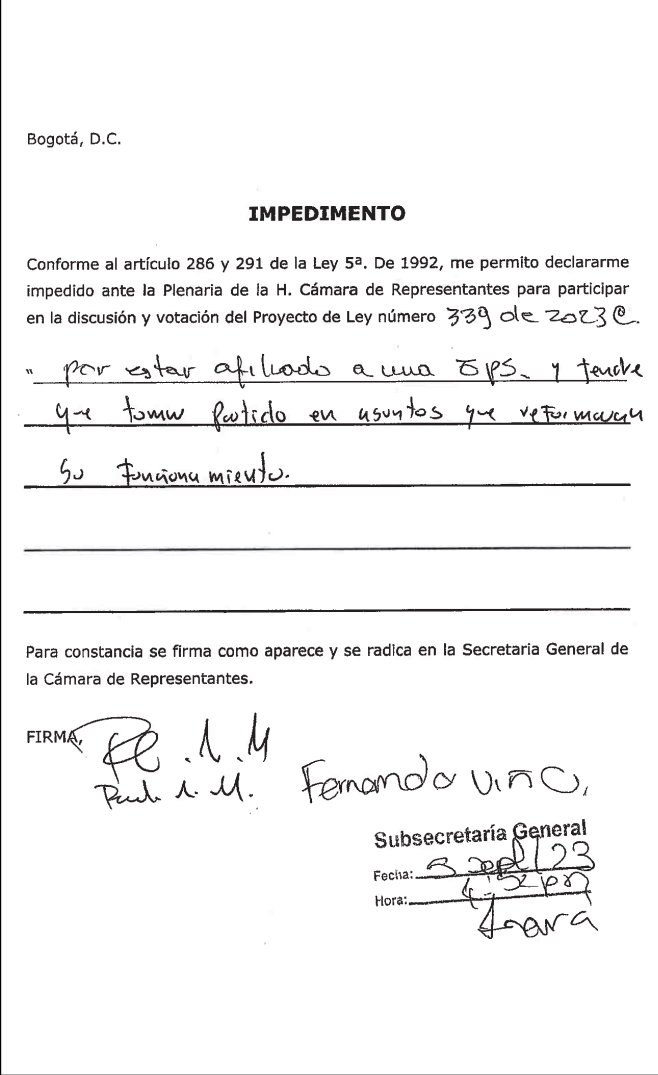 Bogotá, D.C.
IMPEDIMENTO
Conforme al artículo 286 y 291 de la Ley 5ª. De 1992, me permito declararme
impedido ante la Plenaria de la H. Cámara de Representantes para participar
en la discusión y votación del Proyecto de Ley número 339 de 2023 C.
" por estar afiliado a una EPS. y tendre
que tomar partido en asuntos que reformaran
su funcionamiento.
Para constancia se firma como aparece y se radica en la Secretaria General de
la Cámara de Representantes.
FIRMA,
Fernando Niño,
Subsecretaría General
Fecha: 5 sept/23
Hora: